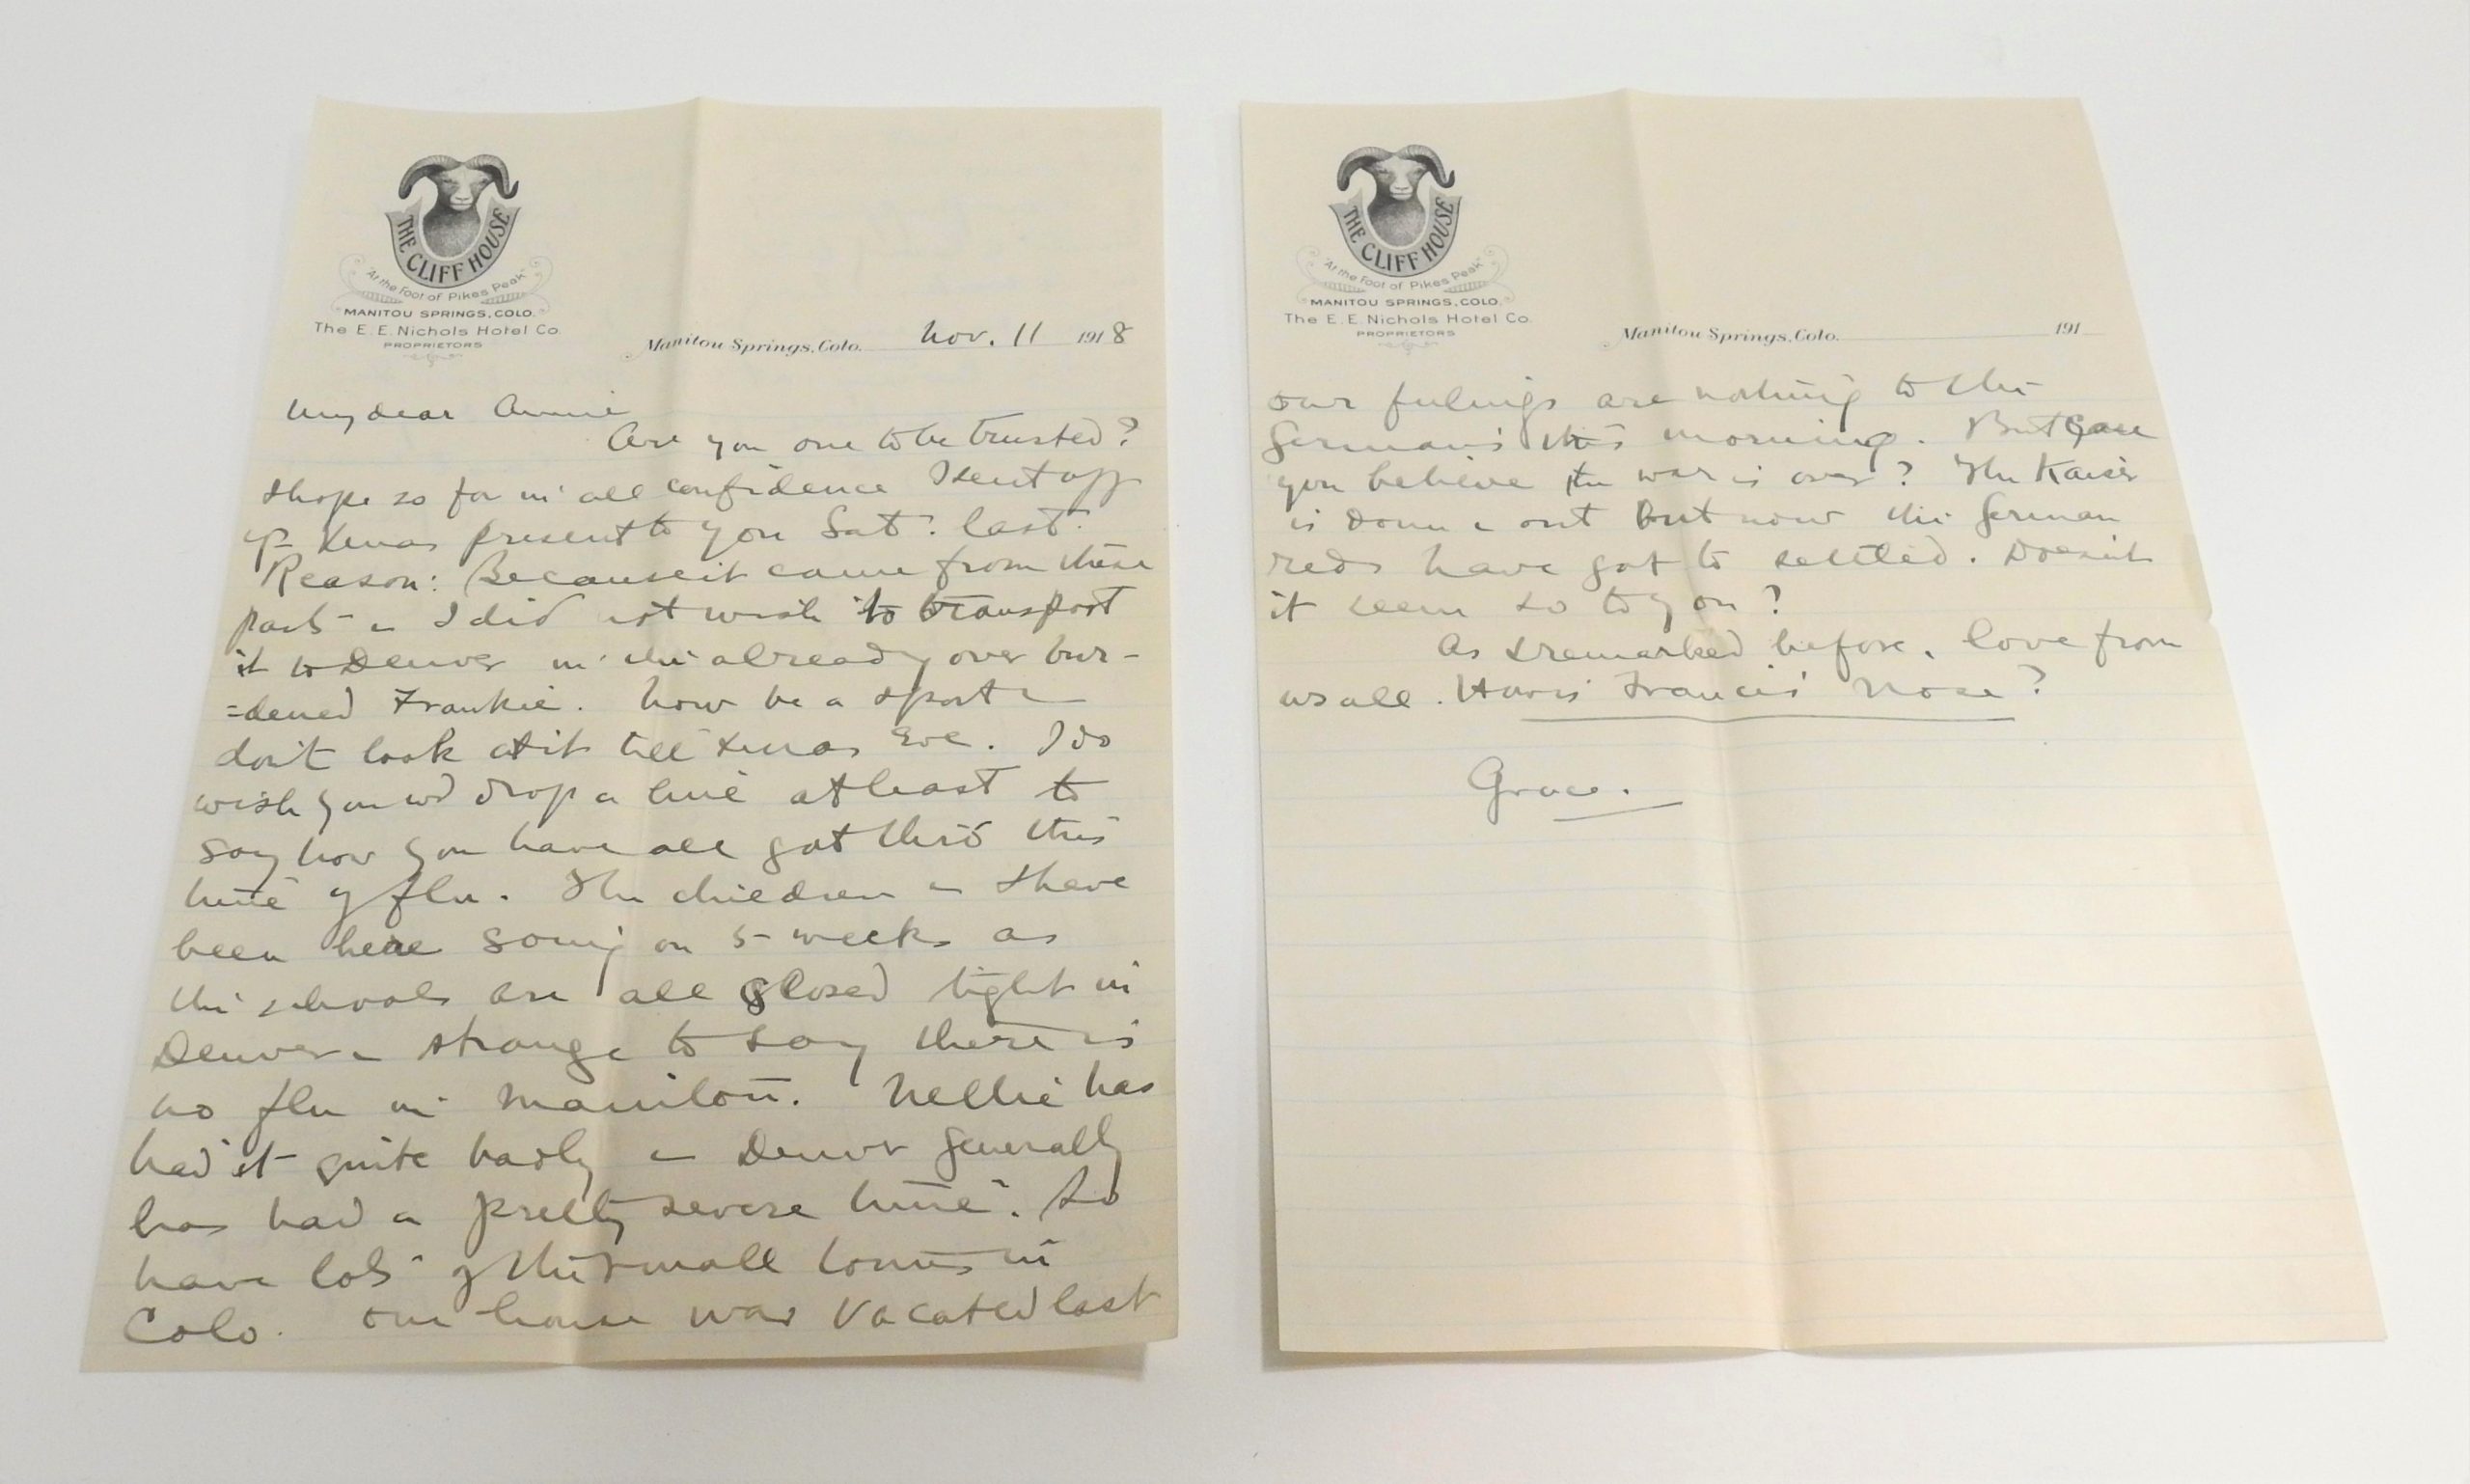 THE CLIFF HOUSE
"At the Foot of Pikes Peak"
MANITOU SPRINGS, COLO.
The E. E. Nichols Hotel Co.
PROPRIETORS
Manitou Springs, Colo. Nov. 11 1918
My dear Annie
Are you one to be trusted?
I hope so for in all confidence I sent off
Xmas present to you Sat. last.
Reason: Because it came from these
parts & I did not wish to transport
it to Denver in the already over bur-
=dened Frankie. Now be a sport &
don't look at it till Xmas Eve. I do
wish you wd drop a line at least to
say how you have all got thro this
time of flu. The children & I have
been here going on 5 weeks as
the schools are all closed tight in
Denver & strange to say there is
no flu in Manitou. Nellie has
had it quite badly & Denver generally
has had a pretty severe time. So
have lots of the small towns in
Colo. Our house was vacated last
THE CLIFF HOUSE
"At the Foot of Pikes Peak"
MANITOU SPRINGS, COLO.
The E. E. Nichols Hotel Co.
PROPRIETORS
Manitou Springs, Colo. 191
our feelings are nothing to the
German's this morning. But can
you believe the war is over? The Kaiser
is down & out but now the German
reds have got to settled. Doesn't
it seem so to you?
As I remarked before, love from
us all. Hows Francis' Nose?
Grace.